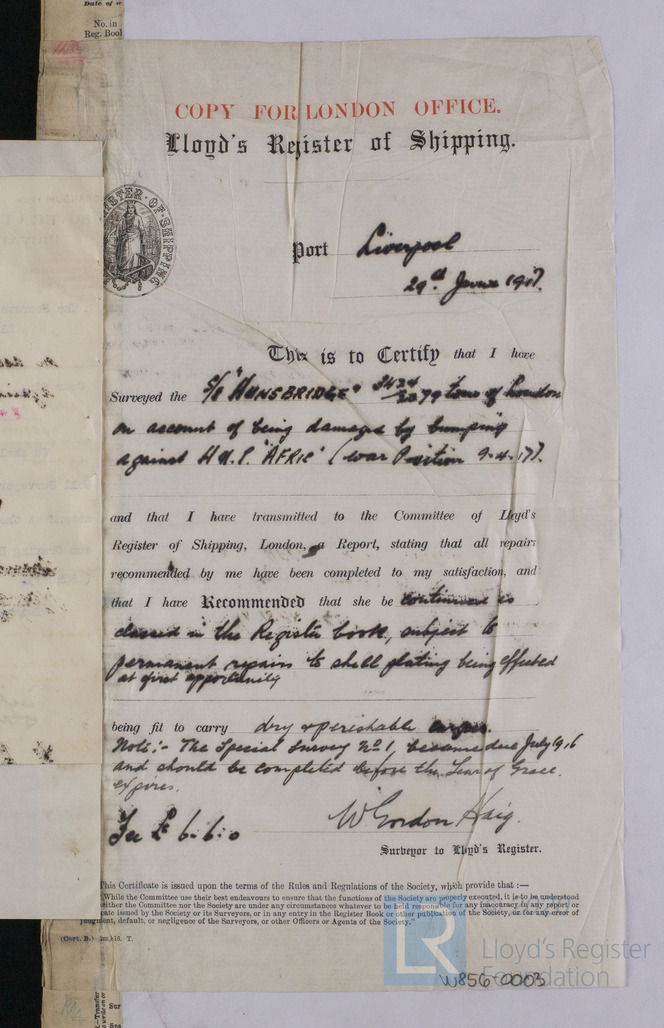 Date of
No. in
Reg. Book
COPY FOR LONDON OFFICE.
Lloyd's Register of Shipping.
REGISTER OF SHIPPING
Port Liverpool
29th June 1917.
This is to Certify that I have
Surveyed the S/S "HUNSBRIDGE" 3424/2279 tons of London
on account of being damaged by bumping
against H.M.S. "AFRIC" (War Position 9-4-17).
and that I have transmitted to the Committee of Lloyd's
Register of Shipping, London, a Report, stating that all repairs
recommended by me have been completed to my satisfaction, and
that I have Recommended that she be continued as
classed in the Register book, subject to
permanent repairs to shell plating being effected
at first opportunity
being fit to carry dry & perishable cargoes.
Note:- The Special Survey No 1, became due July 1916
and should be completed before the Year of Grace
expires.
Fee £ 6-6-0
W Gordon Haig.
Surveyor to Lloyd's Register.
This Certificate is issued upon the terms of the Rules and Regulations of the Society, which provide that:—
"While the Committee use their best endeavours to ensure that the functions of the Society are properly executed, it is to be understood
either the Committee nor the Society are under any circumstances whatever to be held responsible for any inaccuracy in any report or
cate issued by the Society or its Surveyors, or in any entry in the Register Book or other publication of the Society, or for any error of
judgment, default, or negligence of the Surveyors, or other Officers or Agents of the Society."
(Cert. B.) 16. T.
LR
Lloyd's Register
Foundation
W856-0003
Sur